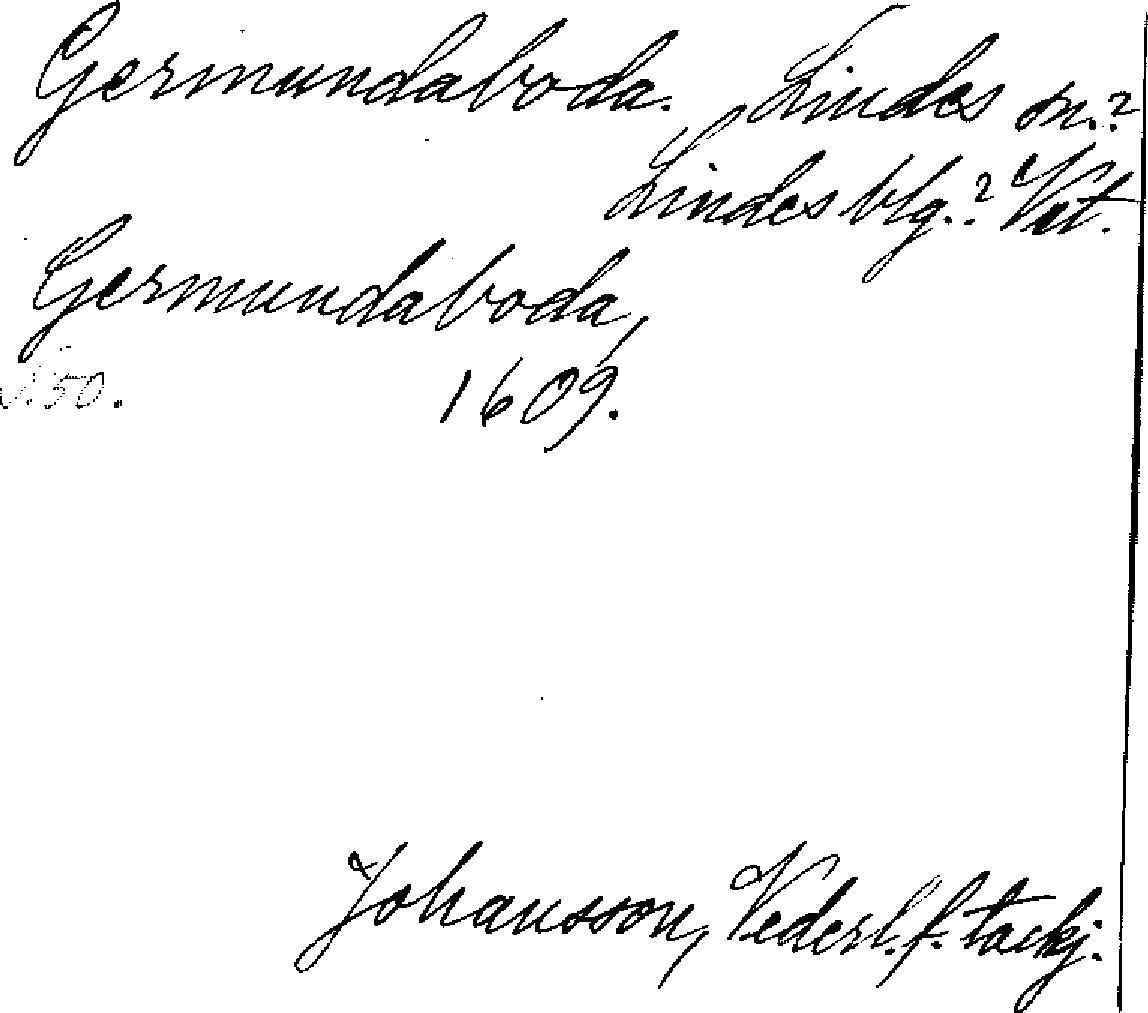 Germundaboda. Lindes sn.?
Lindes blg.? Vst.
Germundaboda,
1609.
s. 50.
Johansson, Vederl. f. tackj.